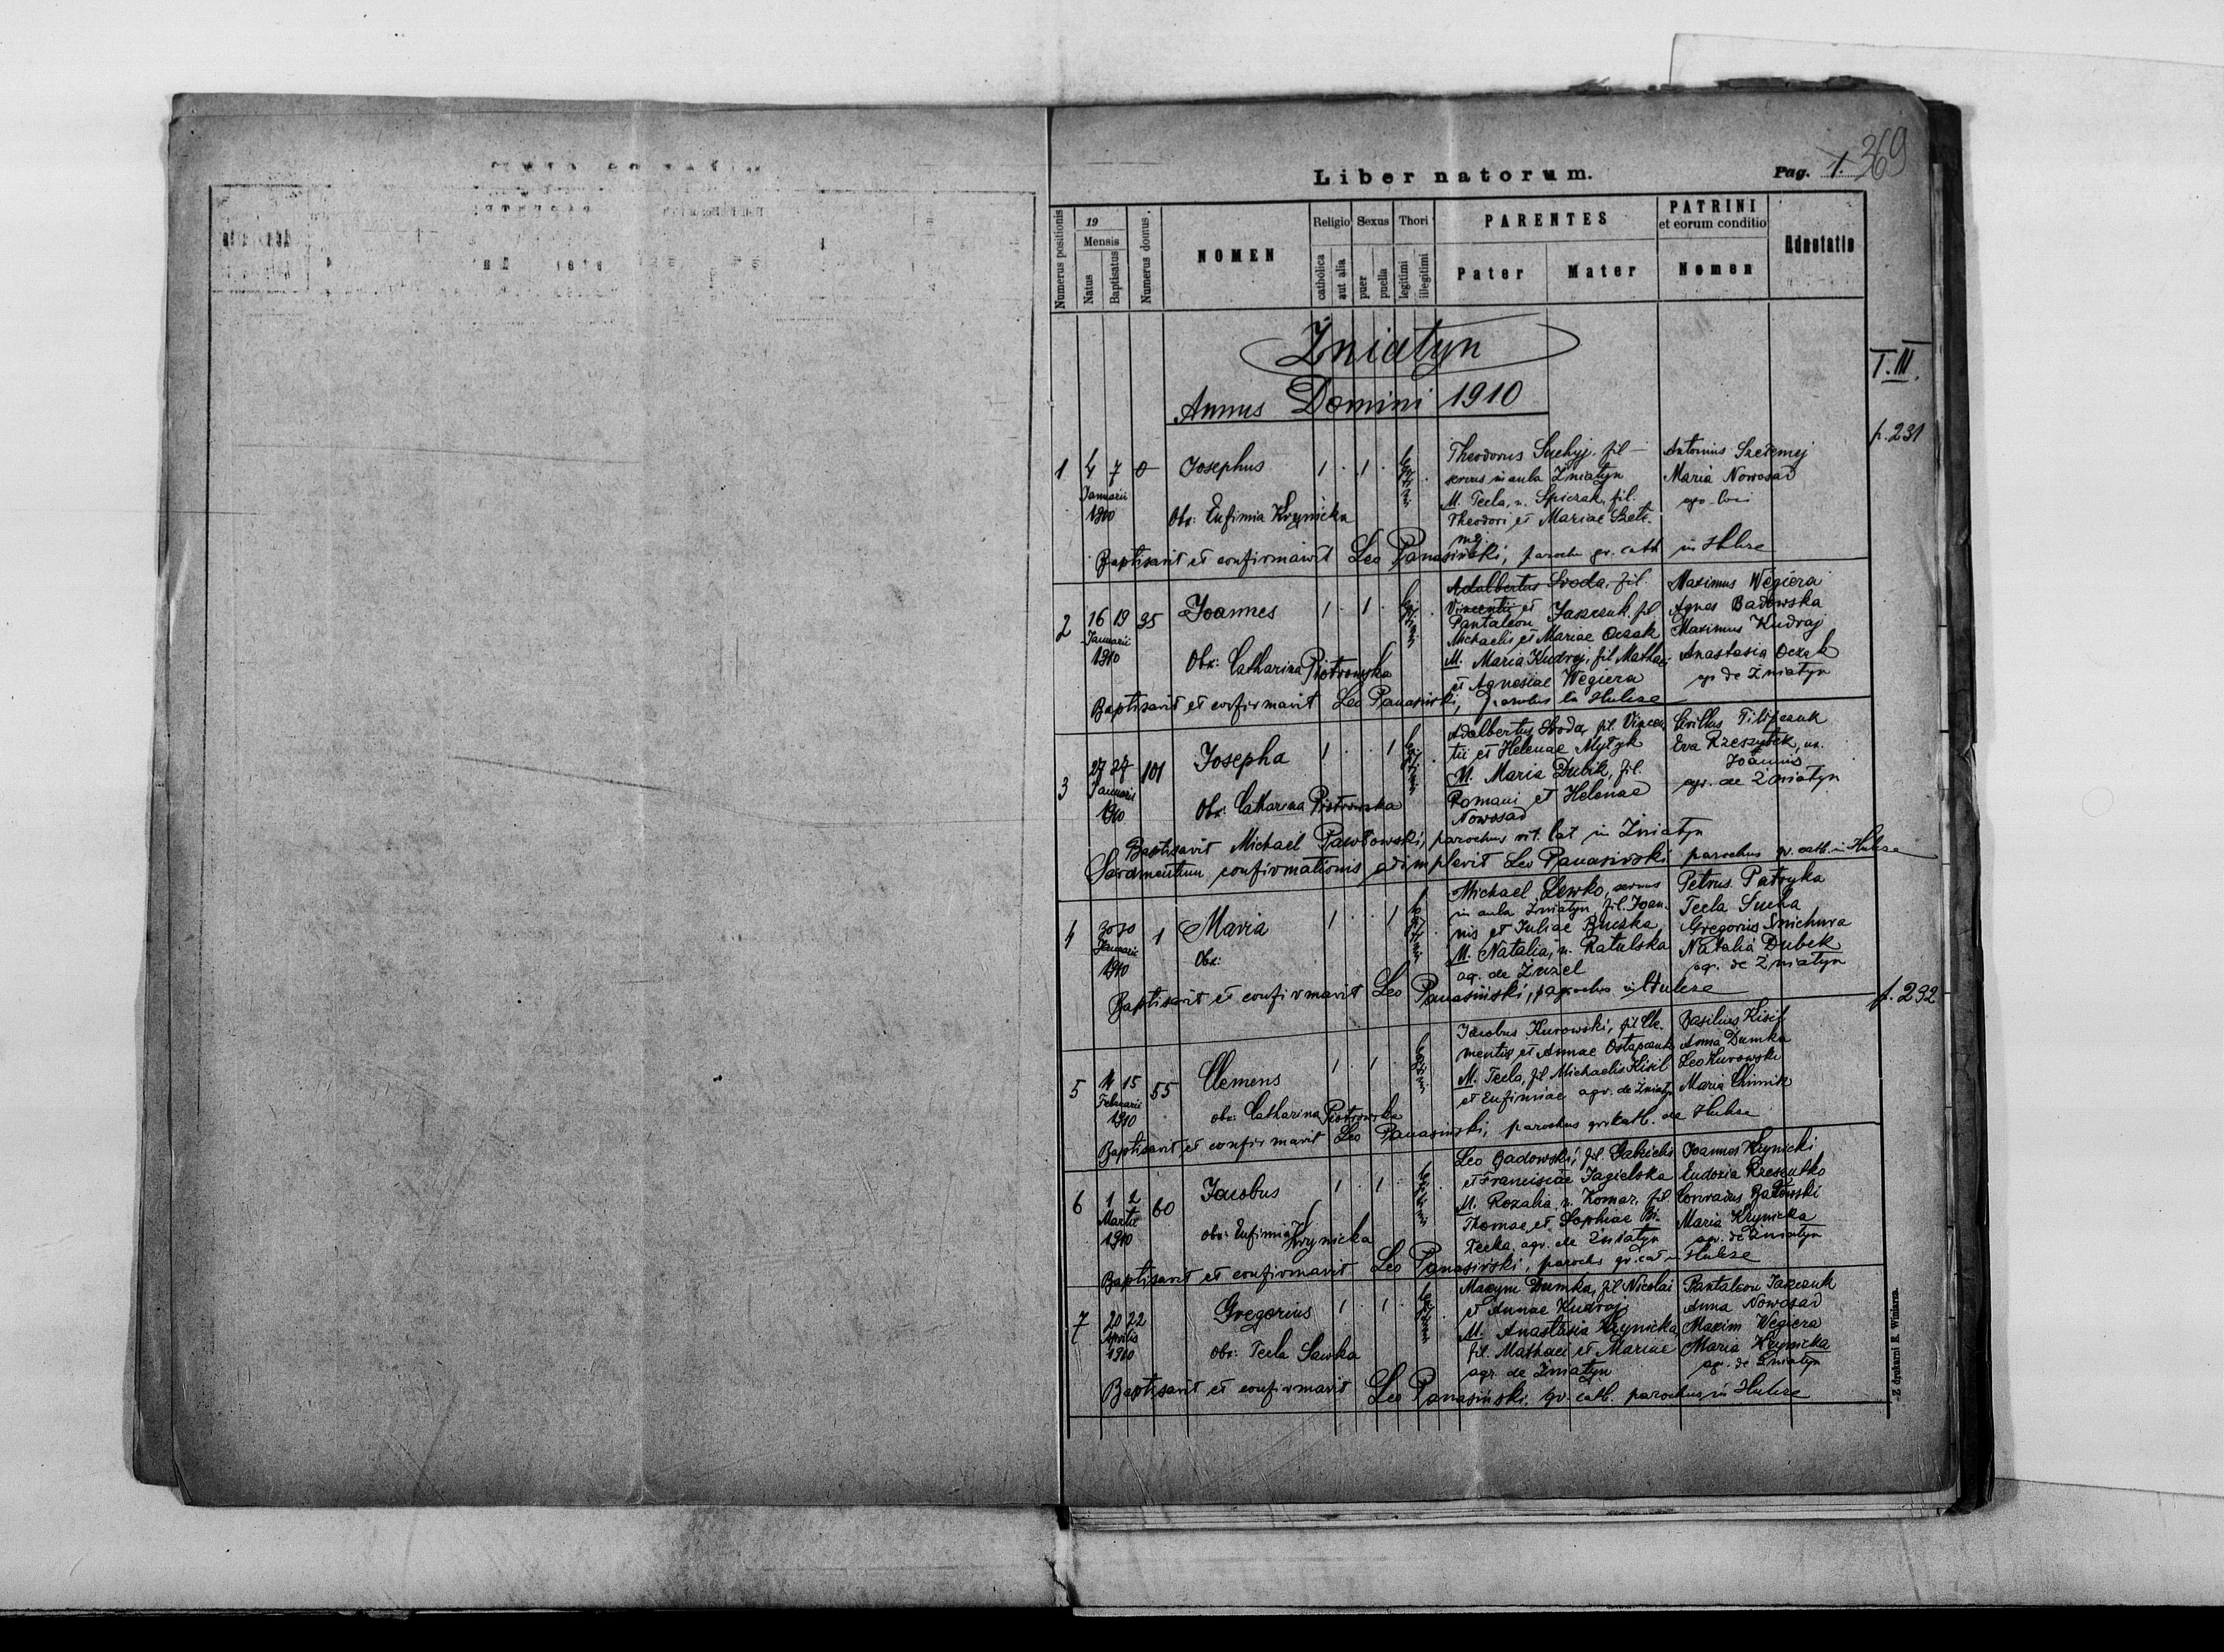 Liber natorum.
Pag. 1. 369
Numerus positionis
19
Mensis
Natus
Baptisatus
Numerus domus.
NOMEN
Religio
catholica
aut alia
Sexus
puer
puella
Thori
legitimi
illegitimi
PARENTES
Pater
Mater
PATRINI
et eorum conditio
Nomen
Adnotatio
Żniatyn
Annus Domini 1910
T. III.
p. 231
1 4 7 0 Josephus 1 . 1 . legitimi .
Januarii
1910
Obs: Eufimia Krynicka
Theodorus Suchyj. fil —
servus in aula Żniatyn
M. Tecla, n. Spiczak, fil.
Theodori et Mariae Szełe-
mej.
Antonius Szełemej
Maria Nowosad
agr. loci
Baptisavit et confirmavit Leo Panasiński, paroch. gr. cath in Hulcze
2 16 19 35 Joannes 1 . 1 . legitimi .
Januarii
1910
Obs: Catharina Piotrowska
Adalbertus Sroda, fil.
Vincentii et
Pantaleon Jaszczuk. fil
Michaelis et Mariae Oczak
M. Maria Kudraj, fil Mathaei
et Agnesiae Węgiera
Maximus Węgiera
Agnes Badowska
Maximus Kudraj
Anastasia Oczak
agr de Żniatyn
Baptisavit et confirmavit Leo Panasiński, parochus in Hulcze
3 27 27 101 Josepha 1 . . 1 legitimi .
Januarii
1910
Obs: Catharina Piotrowska
Adalbertus Sroda, fil. Vincen-
tii et Helenae Mytyk
M. Maria Dubik, fil.
Romani et Helenae
Nowosad
Cyrillus Filipczuk
Eva Rzeszutek, ux.
Joannis
agr. de Żniatyn
Baptisavit Michael Pawłowski, parochus rit. lat in Żniatyn
Sacramentum confirmationis adimplevit Leo Panasiński parochus gr. cath. in Hulcze
4 30 30 1 Maria 1 . . 1 legitimi .
Januarii
1910
Obs:
Michael Lewko, servus
in aula Żniatyn fil. Joan-
nis et Juliae Buczka,
M. Natalia, n. Ratulska
ag. de Żużel
Petrus Patryka
Tecla Sucha
Gregorius Śnichura
Natalia Dubek
agr. de Żniatyn
Baptisavit et confirmavit Leo Panasiński, parochus in Hulcze
p. 232
5 14 15 55 Clemens 1 . 1 . legitimi
Februarii
1910
obs: Catharina Piotrowska
Jacobus Kurowski, fil Cle-
mentis et Annae Ostapczuk
M. Tecla, fil Michaelis Kisil
et Eufimiae agr. de Żniatyn
Basilius Kisil
Anna Dumka
Leo Kurowski
Maria Chimik
Baptisavit et confirmavit Leo Panasiński, parochus gr. cath. de Hulcze
6 1 2 60 Jacobus 1 . 1 . legitimi .
Martii
1910
obs: Eufimia Krynicka
Leo Badowski, fil. Gabrielis
et Franciscae Jagielska
M. Rozalia, n. Komar, fil.
Thomae et Sophiae Bi-
łecka, agr. de Żniatyn
Joannes Krynicki
Eudoxia Rzeszutko
Conradus Badowski
Maria Krynicka
agr. de Żniatyn
Baptisavit et confirmavit Leo Panasiński, parochus gr. cat in Hulcze
7 20 22 Gregorius 1 . 1 . legitimi
Aprilis
1910
obs: Tecla Sawka
Maxym Dumka, fil Nicolai
et Annae Kudraj
M. Anastasia Krynicka
fil. Mathaei et Mariae
agr. de Żniatyn
Pantaleon Jaszczuk
Anna Nowosad
Maxim Węgiera
Maria Krynicka
agr. de Żniatyn
Baptisavit et confirmavit Leo Panasiński, gr. cath. parochus in Hulcze
Z drukarni R. Winiarza.